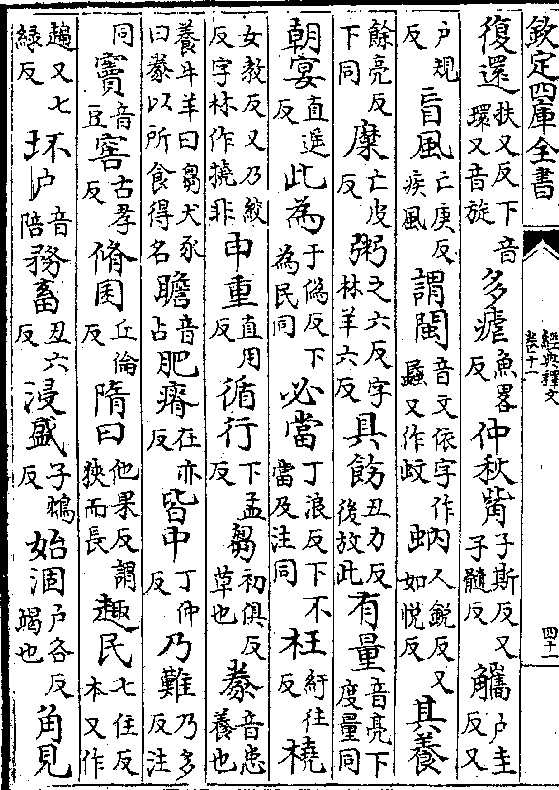 欽定四庫全書 經典釋文 卷十一 四十一
復還扶又反下音環又音旋多瘧魚畧反仲秋觜子斯反又子髓反觿户圭反又
户規反盲風亡庚反疾風謂閩音文依字作蟁又作蚊蚋人銳反又如悦反其養
餘亮反下同糜亡皮反粥之六反字林羊六反具飭丑力反後故此有量音亮下度量同
朝宴直遥反此為于偽反下為民同必當丁浪反下不當及注同枉紆往反橈
女教反又乃絞反字林作撓非申重直用反循行下孟反芻初俱反草也豢音患養也
養牛羊曰芻犬豕曰豢以所食得名瞻音占肥瘠在亦反皆中丁仲反乃難乃多反注
同竇音豆窖古孝反脩囷丘倫反隋曰他果反謂狹而長趣民七住反本又作
趨又七緑反坏户音陪務畜丑六反浸盛子鴆反始涸户各反蝎也角見